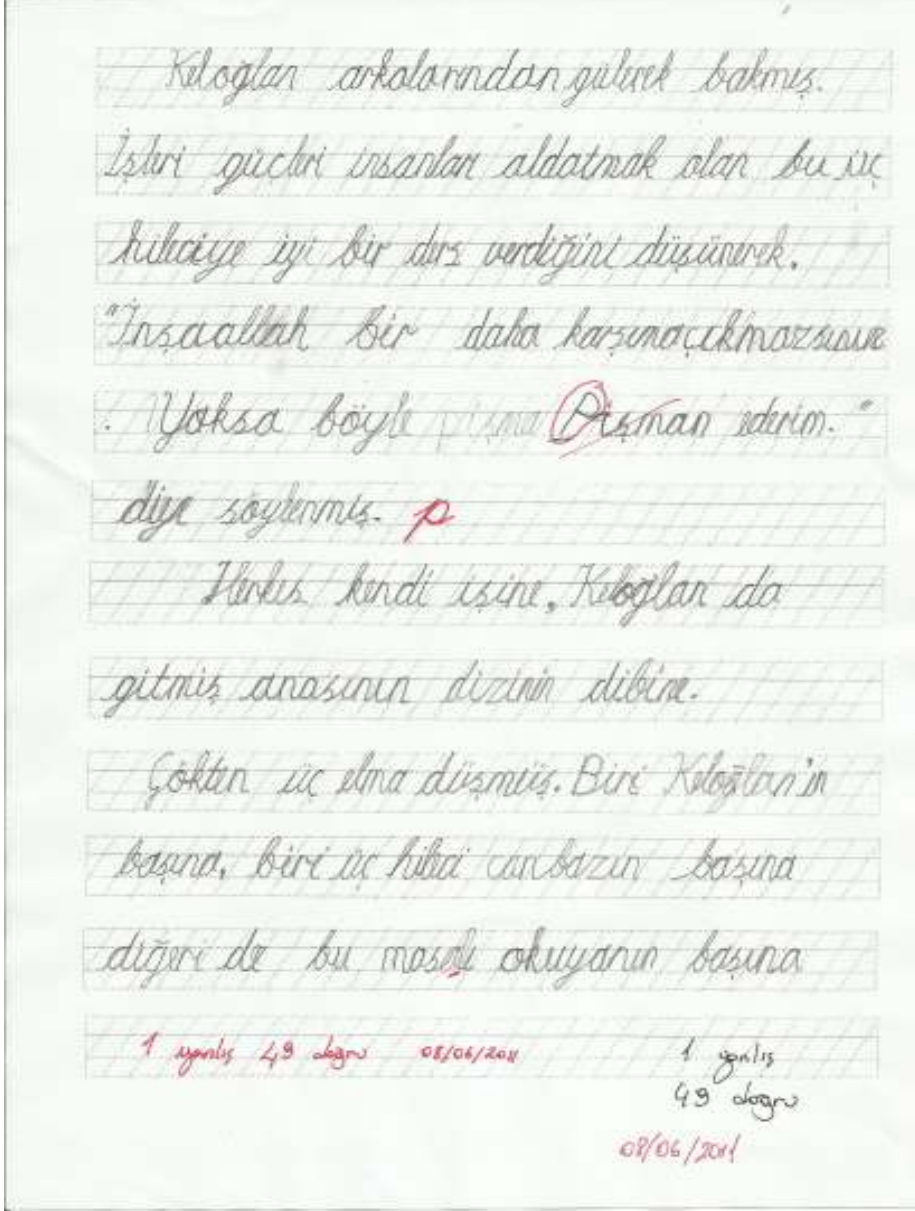 Keloğlan arkalarından gülerek bakmış.
İşleri güçleri insanları aldatmak olan bu üç
hileciye iyi bir ders verdiğini düşünerek.
"İnşaallah bir daha karşıma çıkmazsınız
. Yoksa böyle pişma Pişman ederim."
diye söylenmiş. p
Herkes kendi işine, Keloğlan da
gitmiş anasının dizinin dibine.
Gökten üç elma düşmüş. Biri Keloğlan'ın
başına, biri üç hileci canbazın başına
diğeri de bu masalı okuyanın başına
1 yanlış 49 doğru 08/06/2011 1 yanlış
49 doğru
08/06/2011